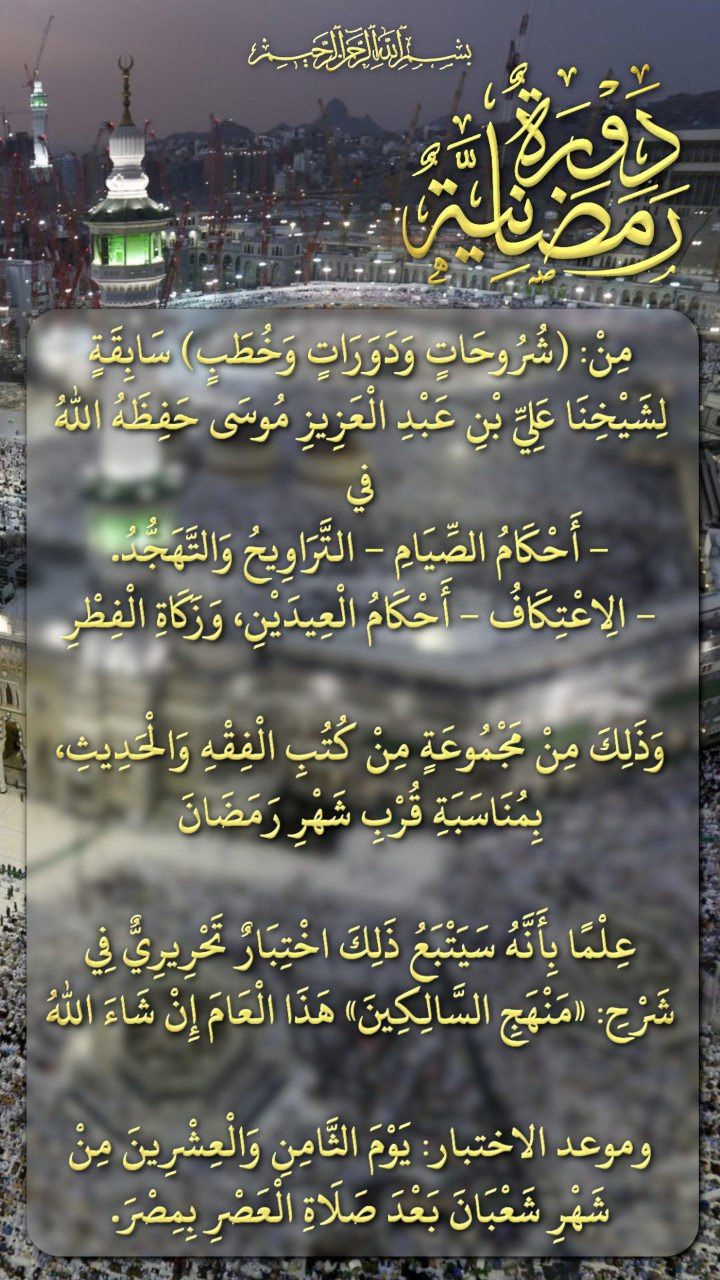 بِسْمِ اللهِ الرَّحْمٰنِ الرَّحِيمِ
دَوْرَةٌ
رَمَضَانِيَّةٌ
مِنْ: (شُرُوحَاتٍ وَدَوَرَاتٍ وَخُطَبٍ) سَابِقَةٍ
لِشَيْخِنَا عَلِيِّ بْنِ عَبْدِ الْعَزِيزِ مُوسَى حَفِظَهُ اللهُ
فِي
– أَحْكَامُ الصِّيَامِ – التَّرَاوِيحُ وَالتَّهَجُّدُ.
– الِاعْتِكَافُ – أَحْكَامُ الْعِيدَيْنِ، وَزَكَاةِ الْفِطْرِ
وَذَلِكَ مِنْ مَجْمُوعَةٍ مِنْ كُتُبِ الْفِقْهِ وَالْحَدِيثِ،
بِمُنَاسَبَةِ قُرْبِ شَهْرِ رَمَضَانَ
عِلْمًا بِأَنَّهُ سَيَتْبَعُ ذَلِكَ اخْتِبَارٌ تَحْرِيرِيٌّ فِي
شَرْحِ: «مَنْهَجِ السَّالِكِينَ» هَذَا الْعَامَ إِنْ شَاءَ اللهُ
وموعد الاختبار: يَوْمَ الثَّامِنِ وَالْعِشْرِينَ مِنْ
شَهْرِ شَعْبَانَ بَعْدَ صَلَاةِ الْعَصْرِ بِمِصْرَ.